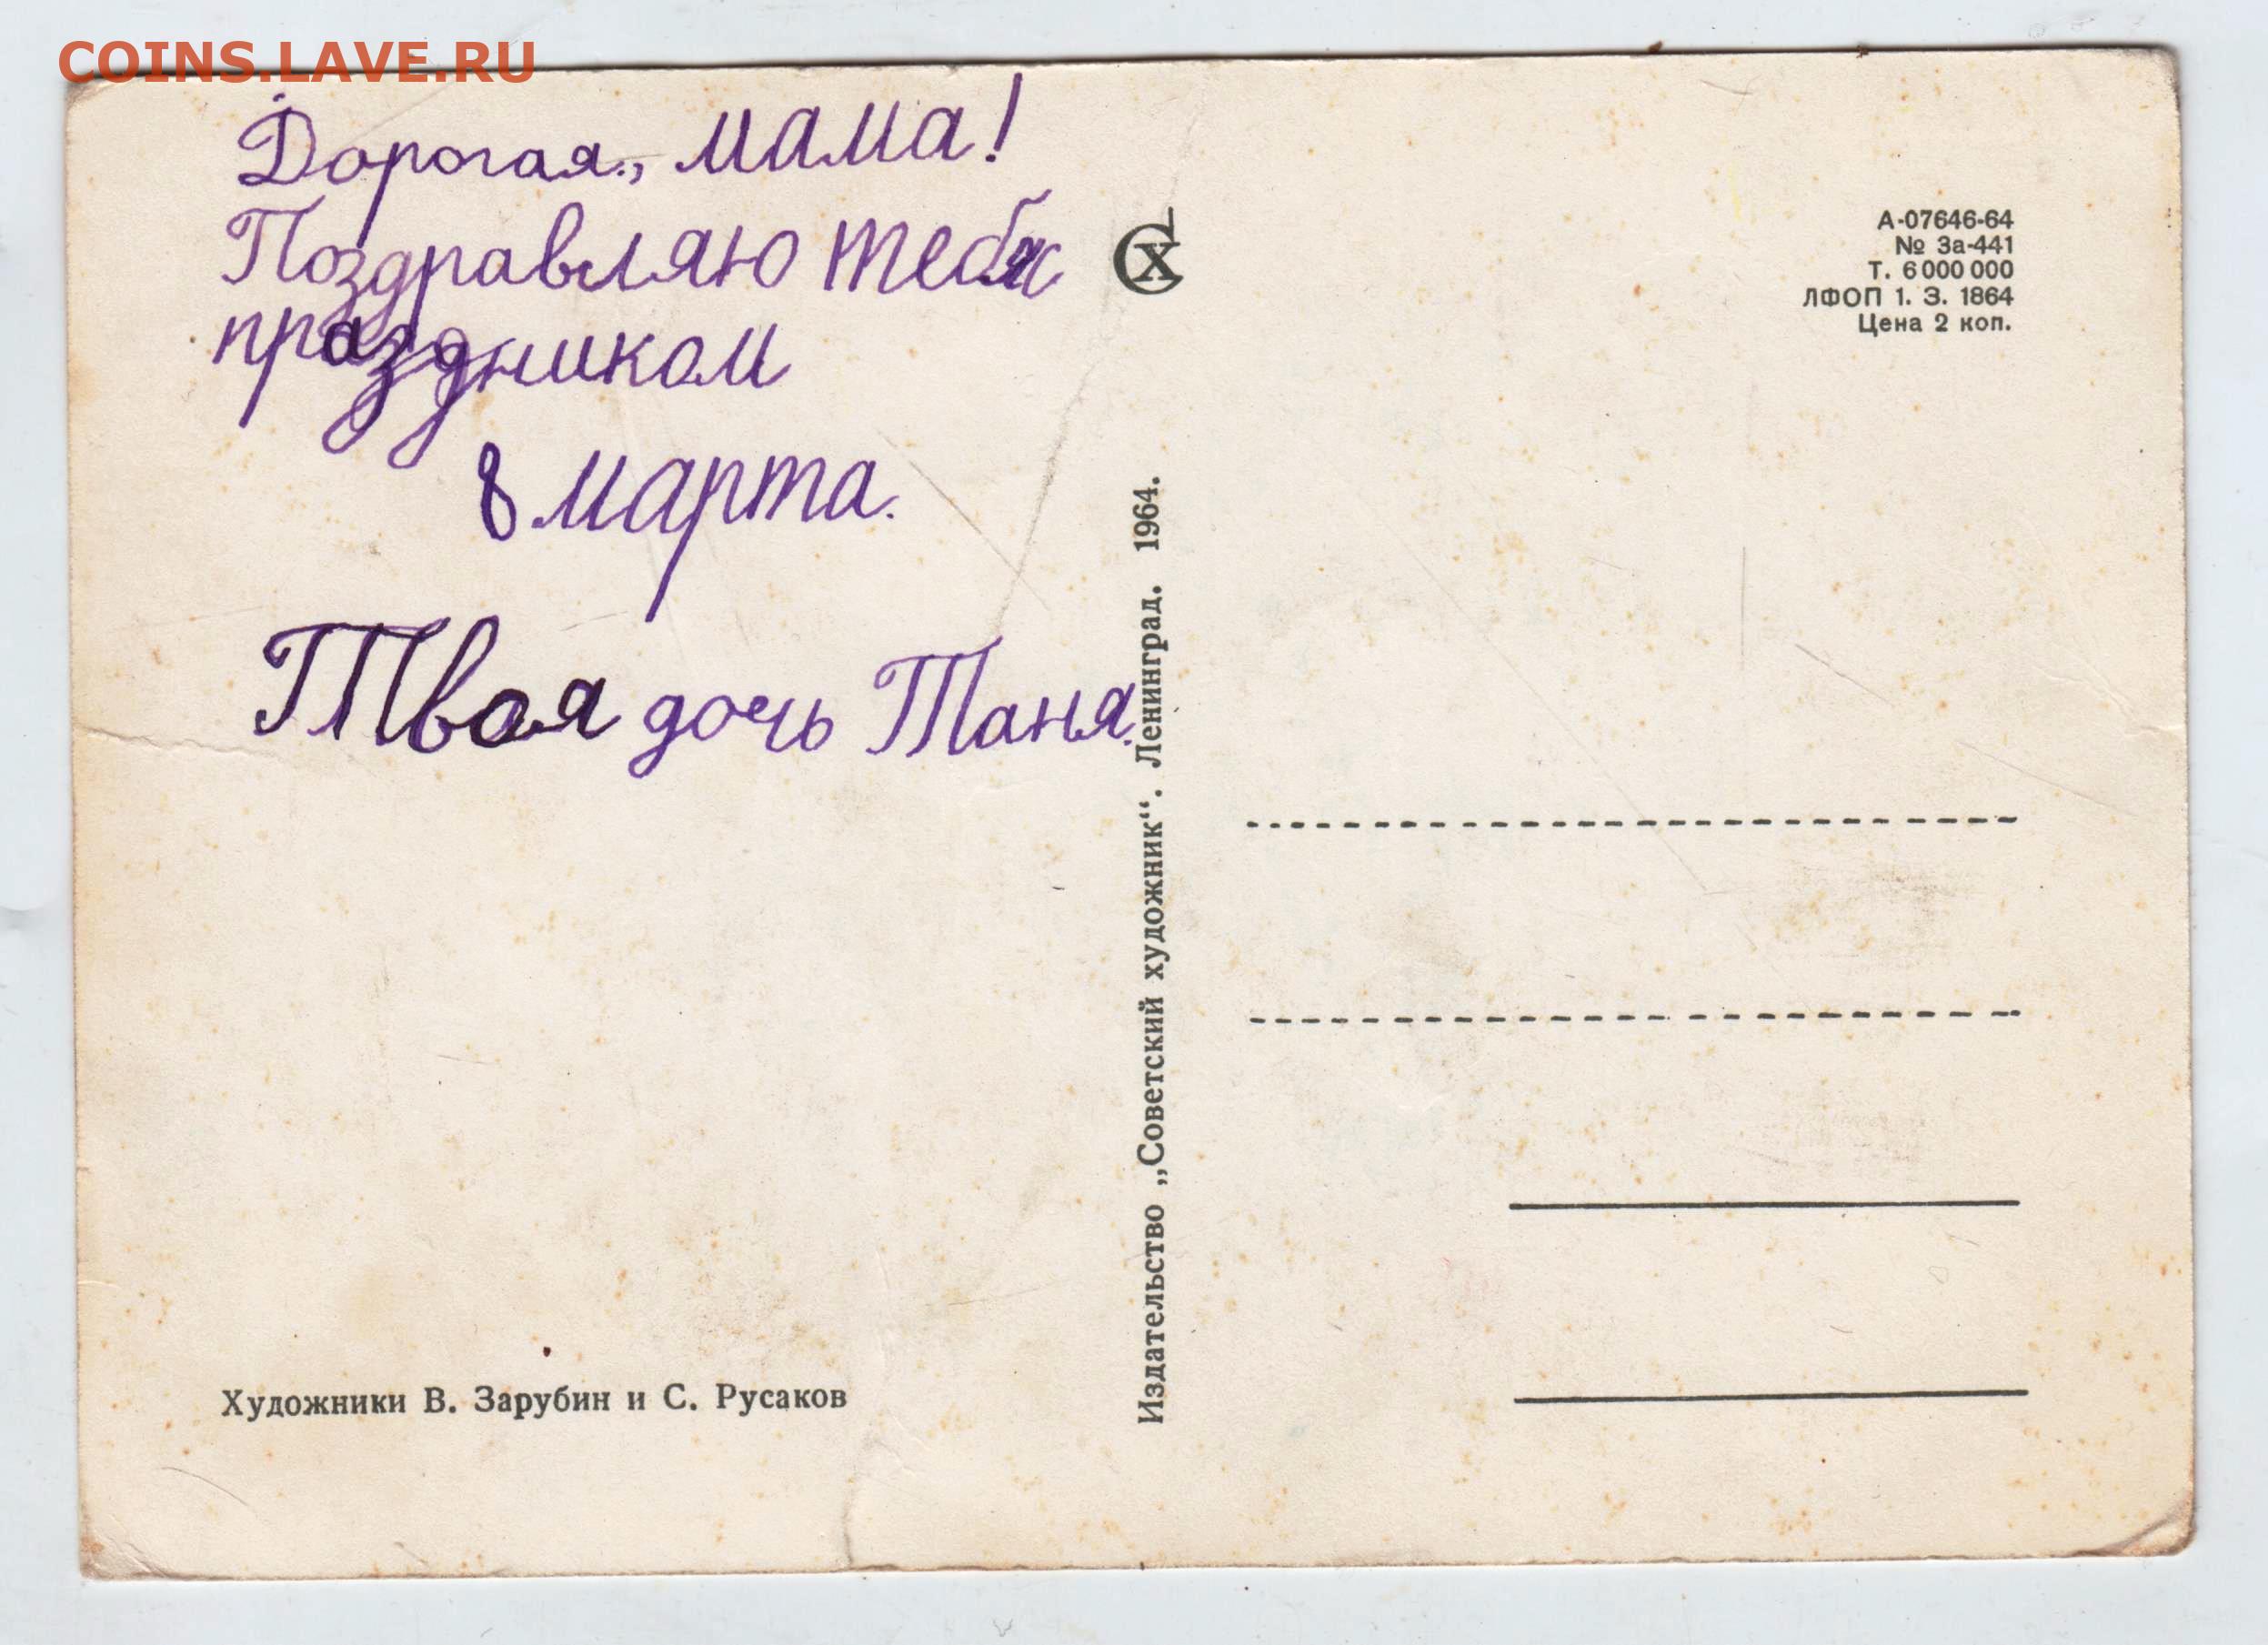 COINS.LAVE.RU
Дорогая., мама!
Поздравляю тебя с
праздником
8 марта.
Твоя дочь Таня.
Художники В. Зарубин и С. Русаков
Издательство „Советский художник“. Ленинград. 1964.
СХ
А-07646-64
№ За-441
Т. 6 000 000
ЛФОП 1. З. 1864
Цена 2 коп.